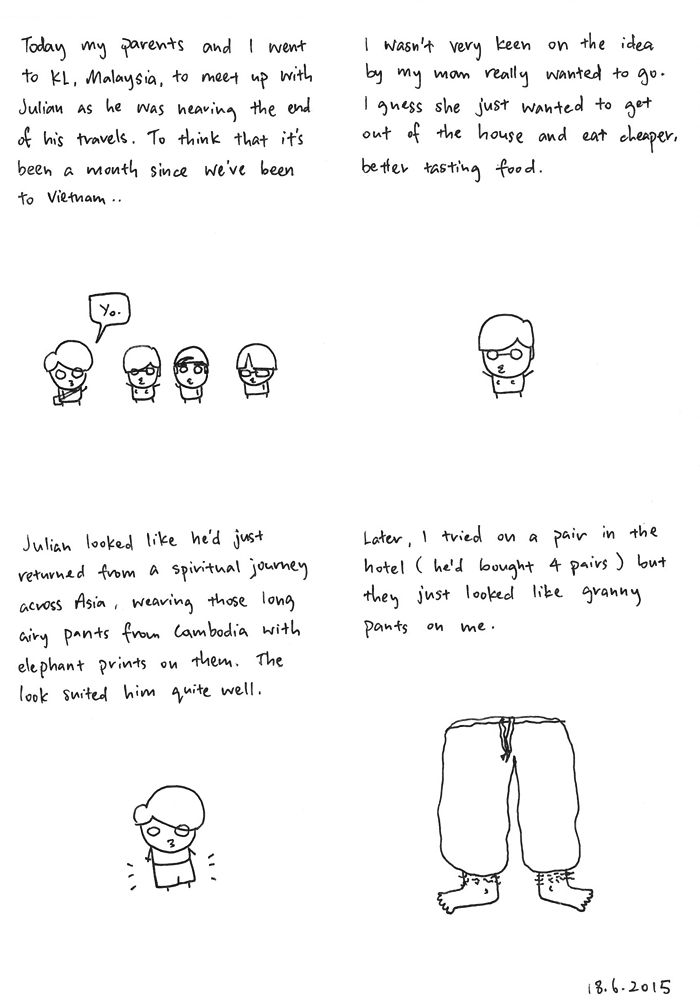 Today my parents and I went
to KL, Malaysia, to meet up with
Julian as he was nearing the end
of his travels. To think that it's
been a month since we've been
to Vietnam..
Yo.
I wasn't very keen on the idea
by my mom really wanted to go.
I guess she just wanted to get
out of the house and eat cheaper,
better tasting food.
Julian looked like he'd just
returned from a spiritual journey
across Asia, wearing those long
airy pants from Cambodia with
elephant prints on them. The
look suited him quite well.
Later, I tried on a pair in the
hotel (he'd bought 4 pairs) but
they just looked like granny
pants on me.
18.6.2015